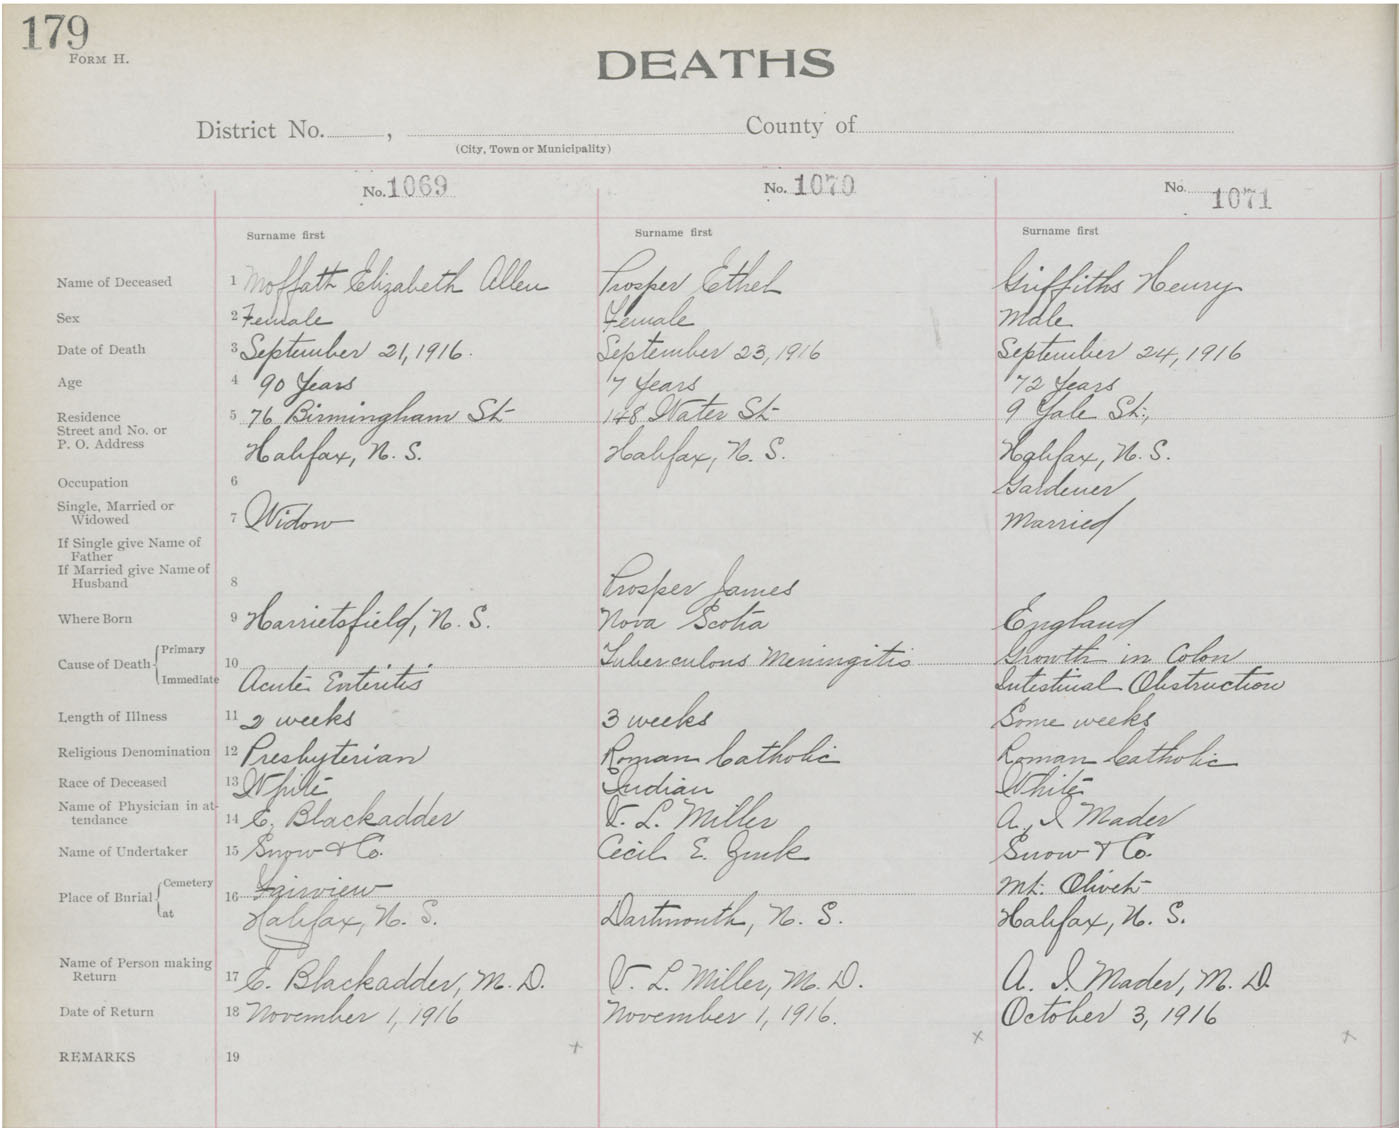 179
FORM H.
DEATHS
District No. , County of
(City, Town or Municipality)
No. 1069 No. 1070 No. 1071
Surname first Surname first Surname first
Name of Deceased 1 Moffatt Elizabeth Allen Prosper Ethel Griffiths Henry
Sex 2 Female Female Male
Date of Death 3 September 21, 1916. September 23, 1916 September 24, 1916
Age 4 90 Years 7 Years 72 Years
Residence 5 76 Birmingham St 148 Water St 9 Yale St.,
Street and No. or
P. O. Address Halifax, N. S. Halifax, N. S. Halifax, N. S.
Occupation 6 Gardener
Single, Married or
Widowed 7 Widow Married
If Single give Name of
Father
If Married give Name of
Husband 8 Prosper James
Where Born 9 Harrietsfield, N. S. Nova Scotia England
Cause of Death { Primary 10 Tuberculous Meningitis Growth in Colon
Immediate Acute Enteritis Intestinal Obstruction
Length of Illness 11 2 weeks 3 weeks Some weeks
Religious Denomination 12 Presbyterian Roman Catholic Roman Catholic
Race of Deceased 13 White Indian White
Name of Physician in at-
tendance 14 E. Blackadder V. L. Miller A. I Mader
Name of Undertaker 15 Snow & Co. Cecil E. Zink Snow & Co.
Place of Burial { Cemetery 16 Fairview Mt. Olivet
at Halifax, N. S. Dartmouth, N. S. Halifax, N. S.
Name of Person making
Return 17 E. Blackadder, M. D. V. L. Miller, M. D. A. I. Mader, M. D.
Date of Return 18 November 1, 1916 November 1, 1916. October 3, 1916
REMARKS 19 x x x